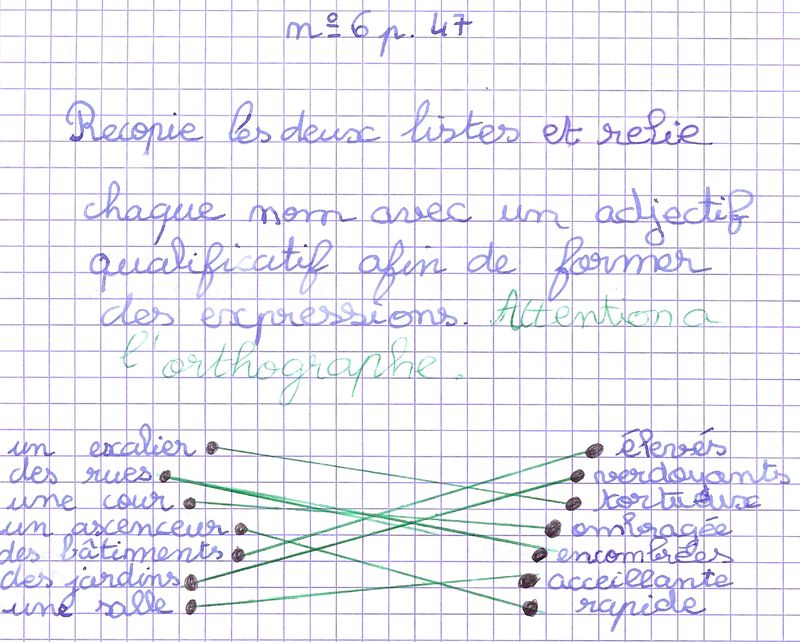 nº 6 p. 47
Recopie les deux listes et relie
chaque nom avec un adjectif
qualificatif afin de former
des expressions. Attention a
l'orthographe.
un escalier élevés
des rues verdoyants
une cour tortueux
un ascenceur ombragée
des bâtiments encombrées
des jardins acceillante
une salle rapide